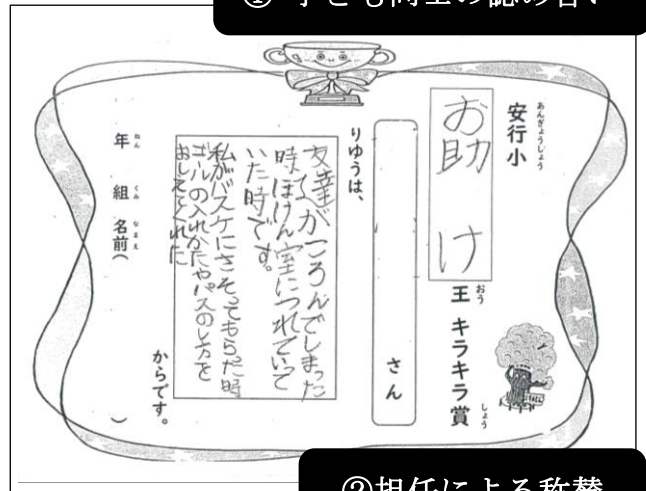 ① 子ども同士の認め合い
安行小
あんぎょうしょう
お助け
王 キラキラ賞
おう しょう
さん
りゆうは、
友達がころんでしまった
時ほけん室につれていって
いた時です。
私がバスケにさそってもらった時
ゴールの入れかたやパスのし方を
おしえてくれた
からです。
年 組 名前( )
ねん くみ なまえ
②担任による称賛